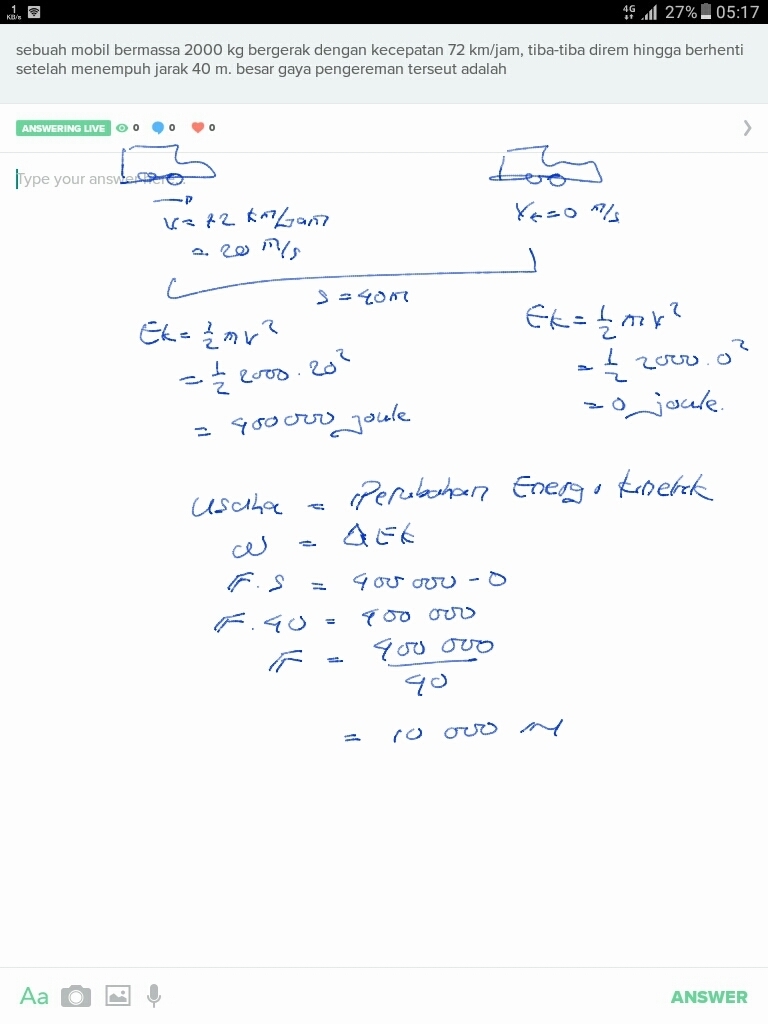 1 KB/s 4G 27% 05:17
sebuah mobil bermassa 2000 kg bergerak dengan kecepatan 72 km/jam, tiba-tiba direm hingga berhenti
setelah menempuh jarak 40 m. besar gaya pengereman terseut adalah
ANSWERING LIVE 0 0 0
Type your answer here...
v = 72 km/jam
= 20 m/s
Vt = 0 m/s
s = 40m
Ek = 1/2 mv²
= 1/2 2000 . 20²
= 400000 joule
Ek = 1/2 mv²
= 1/2 2000 . 0²
= 0 joule.
Usaha = Perubahan Energi kinetik
W = ΔEk
F . s = 400 000 - 0
F . 40 = 400 000
F = 400 000 / 40
= 10 000 N
Aa ANSWER